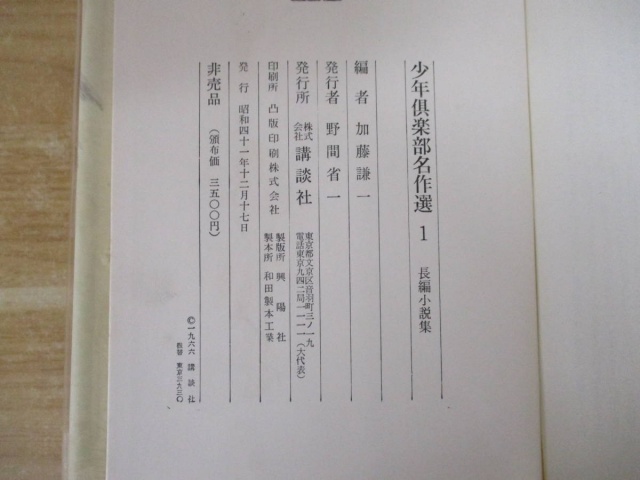 少年倶楽部名作選 1 長編小説集
編者 加藤謙一
発行者 野間省一
発行所 株式会社 講談社
東京都文京区音羽町三ノ一九
電話東京九四二局一一一一(大代表)
印刷所 凸版印刷株式会社
製版所 興陽社
製本所 和田製本工業
発行 昭和四十一年十二月十七日
非売品 (頒布価 三五〇〇円)
©一九六六 講談社
振替 東京三九三〇